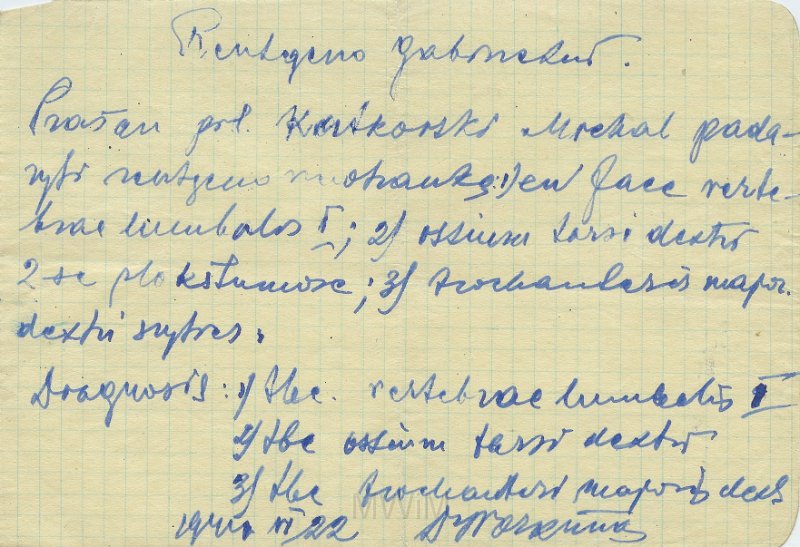 Rentgeno gabinetui.
Prašau pil. Kutkowski Michal pada-
ryti rentgeno nuotrauką: 1) en face verte-
brae lumbalis I; 2) ossium tarsi dextri
2-se plokštumose; 3) trochanteris major.
dextri srities.
Diagnosis: 1) tbc. vertebrae lumbalis I
2) tbc ossium tarsi dextri
3) tbc trochanteri majoris dext
VI 22 Dr
MWiM